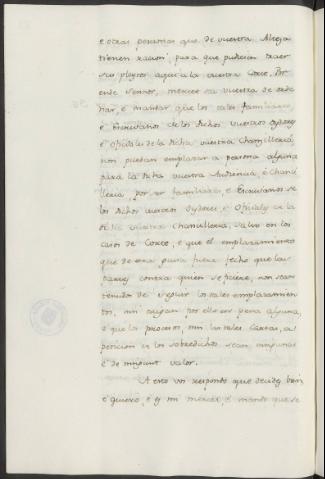 e otras personas que de vuestra Alteza
tienen racion, para que pudiesen traer
sus pleytos aqui a la vuestra Corte. Por
ende Señor, mercet sea vuestra de orde
nar, e mandar que los tales familiares,
e Escrivanos de los dichos vuestros Oydores
e Oficiales de la dicha vuestra Chancilleria,
non puedan emplazar a persona alguna
para la dicha vuestra Audiencia, e Chanci
lleria, por ser familiares, e Escrivanos de
los dichos vuestros Oydores, e Oficiales de la
dicha vuestra Chancilleria, salvo en los
casos de Corte, e que el emplazamiento
que de otra guisa fuere fecho que las
partes contra quien se ficiere, non sean
tenudos de seguir los tales emplazamien
tos, nin caigan por ello en pena alguna,
e que los procesos, nin las tales Cartas, a
peticion de los sobredichos sean ningunas
e de ningunt valor.
A esto vos respondo que decides bien
e quiero, e es mi mercet, e mando que se